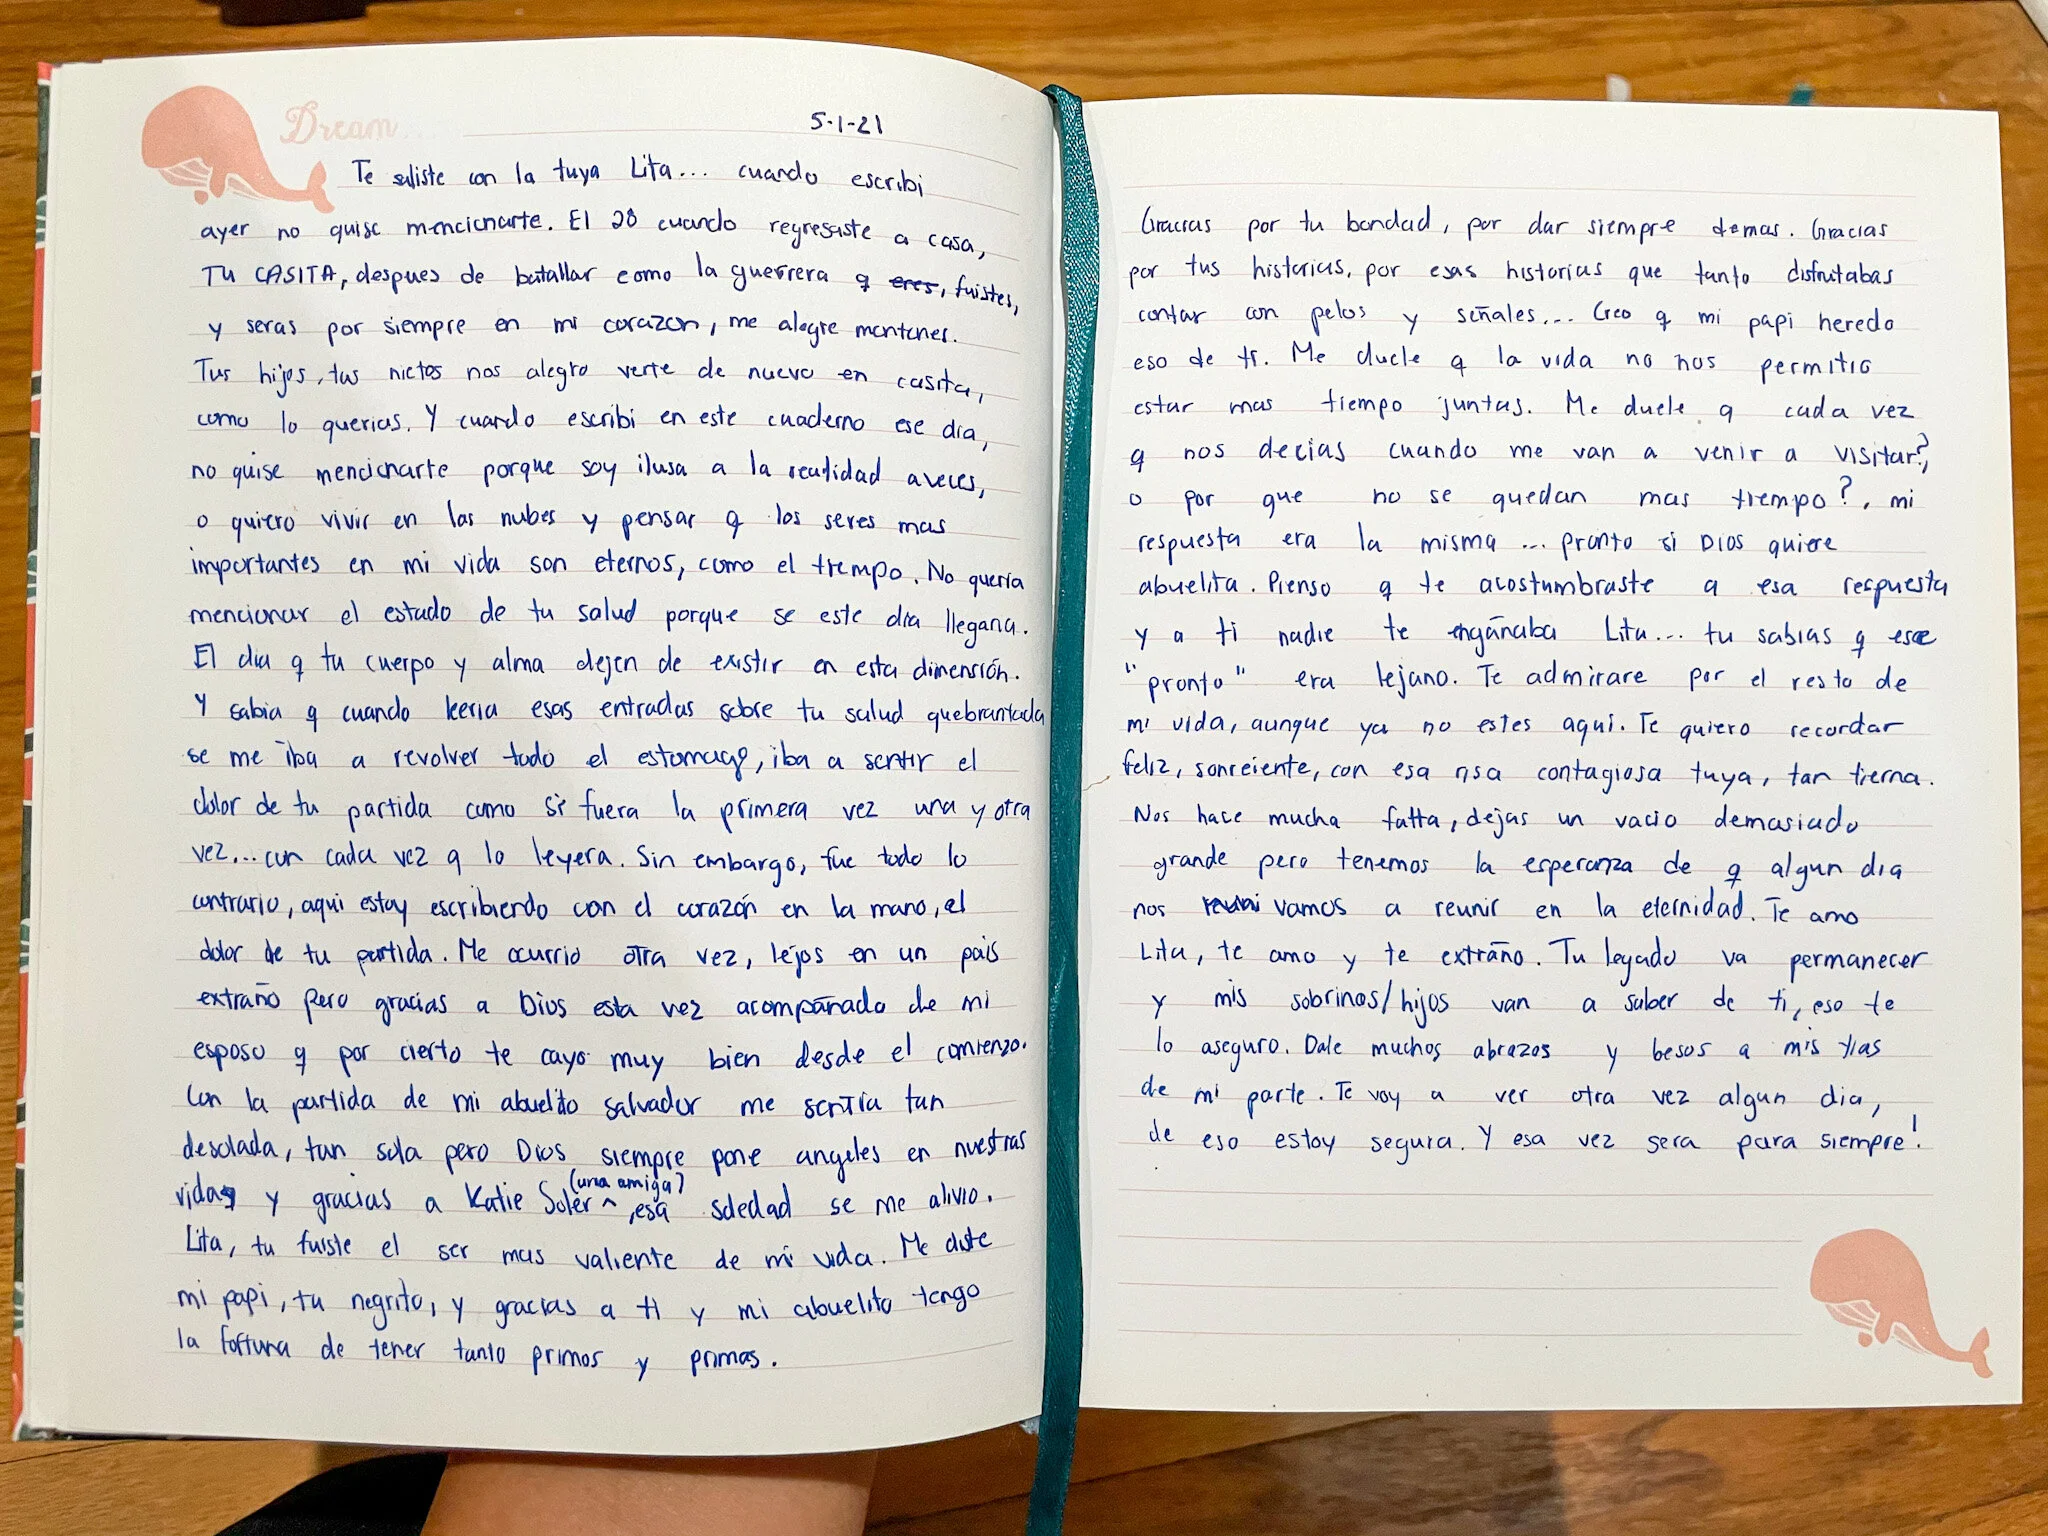 Dream...
5-1-21
Te saliste con la tuya Lita... cuando escribi
ayer no quise mencionarte. El 28 cuando regresaste a casa,
TU CASITA, despues de batallar como la guerrera q eres, fuistes,
y seras por siempre en mi corazon, me alegre montones.
Tus hijos, tus nietos nos alegro verte de nuevo en casita,
como lo querias. Y cuando escribi en este cuaderno ese dia,
no quise mencionarte porque soy ilusa a la realidad aveces,
o quiero vivir en las nubes y pensar q los seres mas
importantes en mi vida son eternos, como el tiempo. No queria
mencionar el estado de tu salud porque se este dia llegaria.
El dia q tu cuerpo y alma dejen de existir en esta dimensión.
Y sabia q cuando leeria esas entradas sobre tu salud quebrantada
se me iba a revolver todo el estomago, iba a sentir el
dolor de tu partida como si fuera la primera vez una y otra
vez... con cada vez q lo leyera. Sin embargo, fue todo lo
contrario, aqui estoy escribiendo con el corazón en la mano, el
dolor de tu partida. Me ocurrio otra vez, lejos en un pais
extraño pero gracias a Dios esta vez acompañado de mi
esposo q por cierto te cayo muy bien desde el comienzo.
Con la partida de mi abuelito Salvador me sentia tan
desolada, tan sola pero Dios siempre pone angeles en nuestras
vidas y gracias a Katie Soler ^ (una amiga), esa soledad se me alivio.
Lita, tu fuiste el ser mas valiente de mi vida. Me diste
mi papi, tu negrito, y gracias a ti y mi abuelito tengo
la fortuna de tener tanto primos y primas.
Gracias por tu bondad, por dar siempre demas. Gracias
por tus historias, por esas historias que tanto disfrutabas
contar con pelos y señales... Creo q mi papi heredo
eso de ti. Me duele q la vida no nos permitio
estar mas tiempo juntas. Me duele q cada vez
q nos decias cuando me van a venir a visitar?,
o por que no se quedan mas tiempo?, mi
respuesta era la misma ... pronto si Dios quiere
abuelita. Pienso q te acostumbraste a esa respuesta
y a ti nadie te engañaba Lita... tu sabias q ese
"pronto" era lejano. Te admirare por el resto de
mi vida, aunque ya no estes aqui. Te quiero recordar
feliz, sonreiente, con esa risa contagiosa tuya, tan tierna.
Nos hace mucha falta, dejas un vacio demasiado
grande pero tenemos la esperanza de q algun dia
nos vamos a reunir en la eternidad. Te amo
Lita, te amo y te extraño. Tu legado va permanecer
y mis sobrinos/hijos van a saber de ti, eso te
lo aseguro. Dale muchos abrazos y besos a mis tias
de mi parte. Te voy a ver otra vez algun dia,
de eso estoy segura. Y esa vez sera para siempre!.